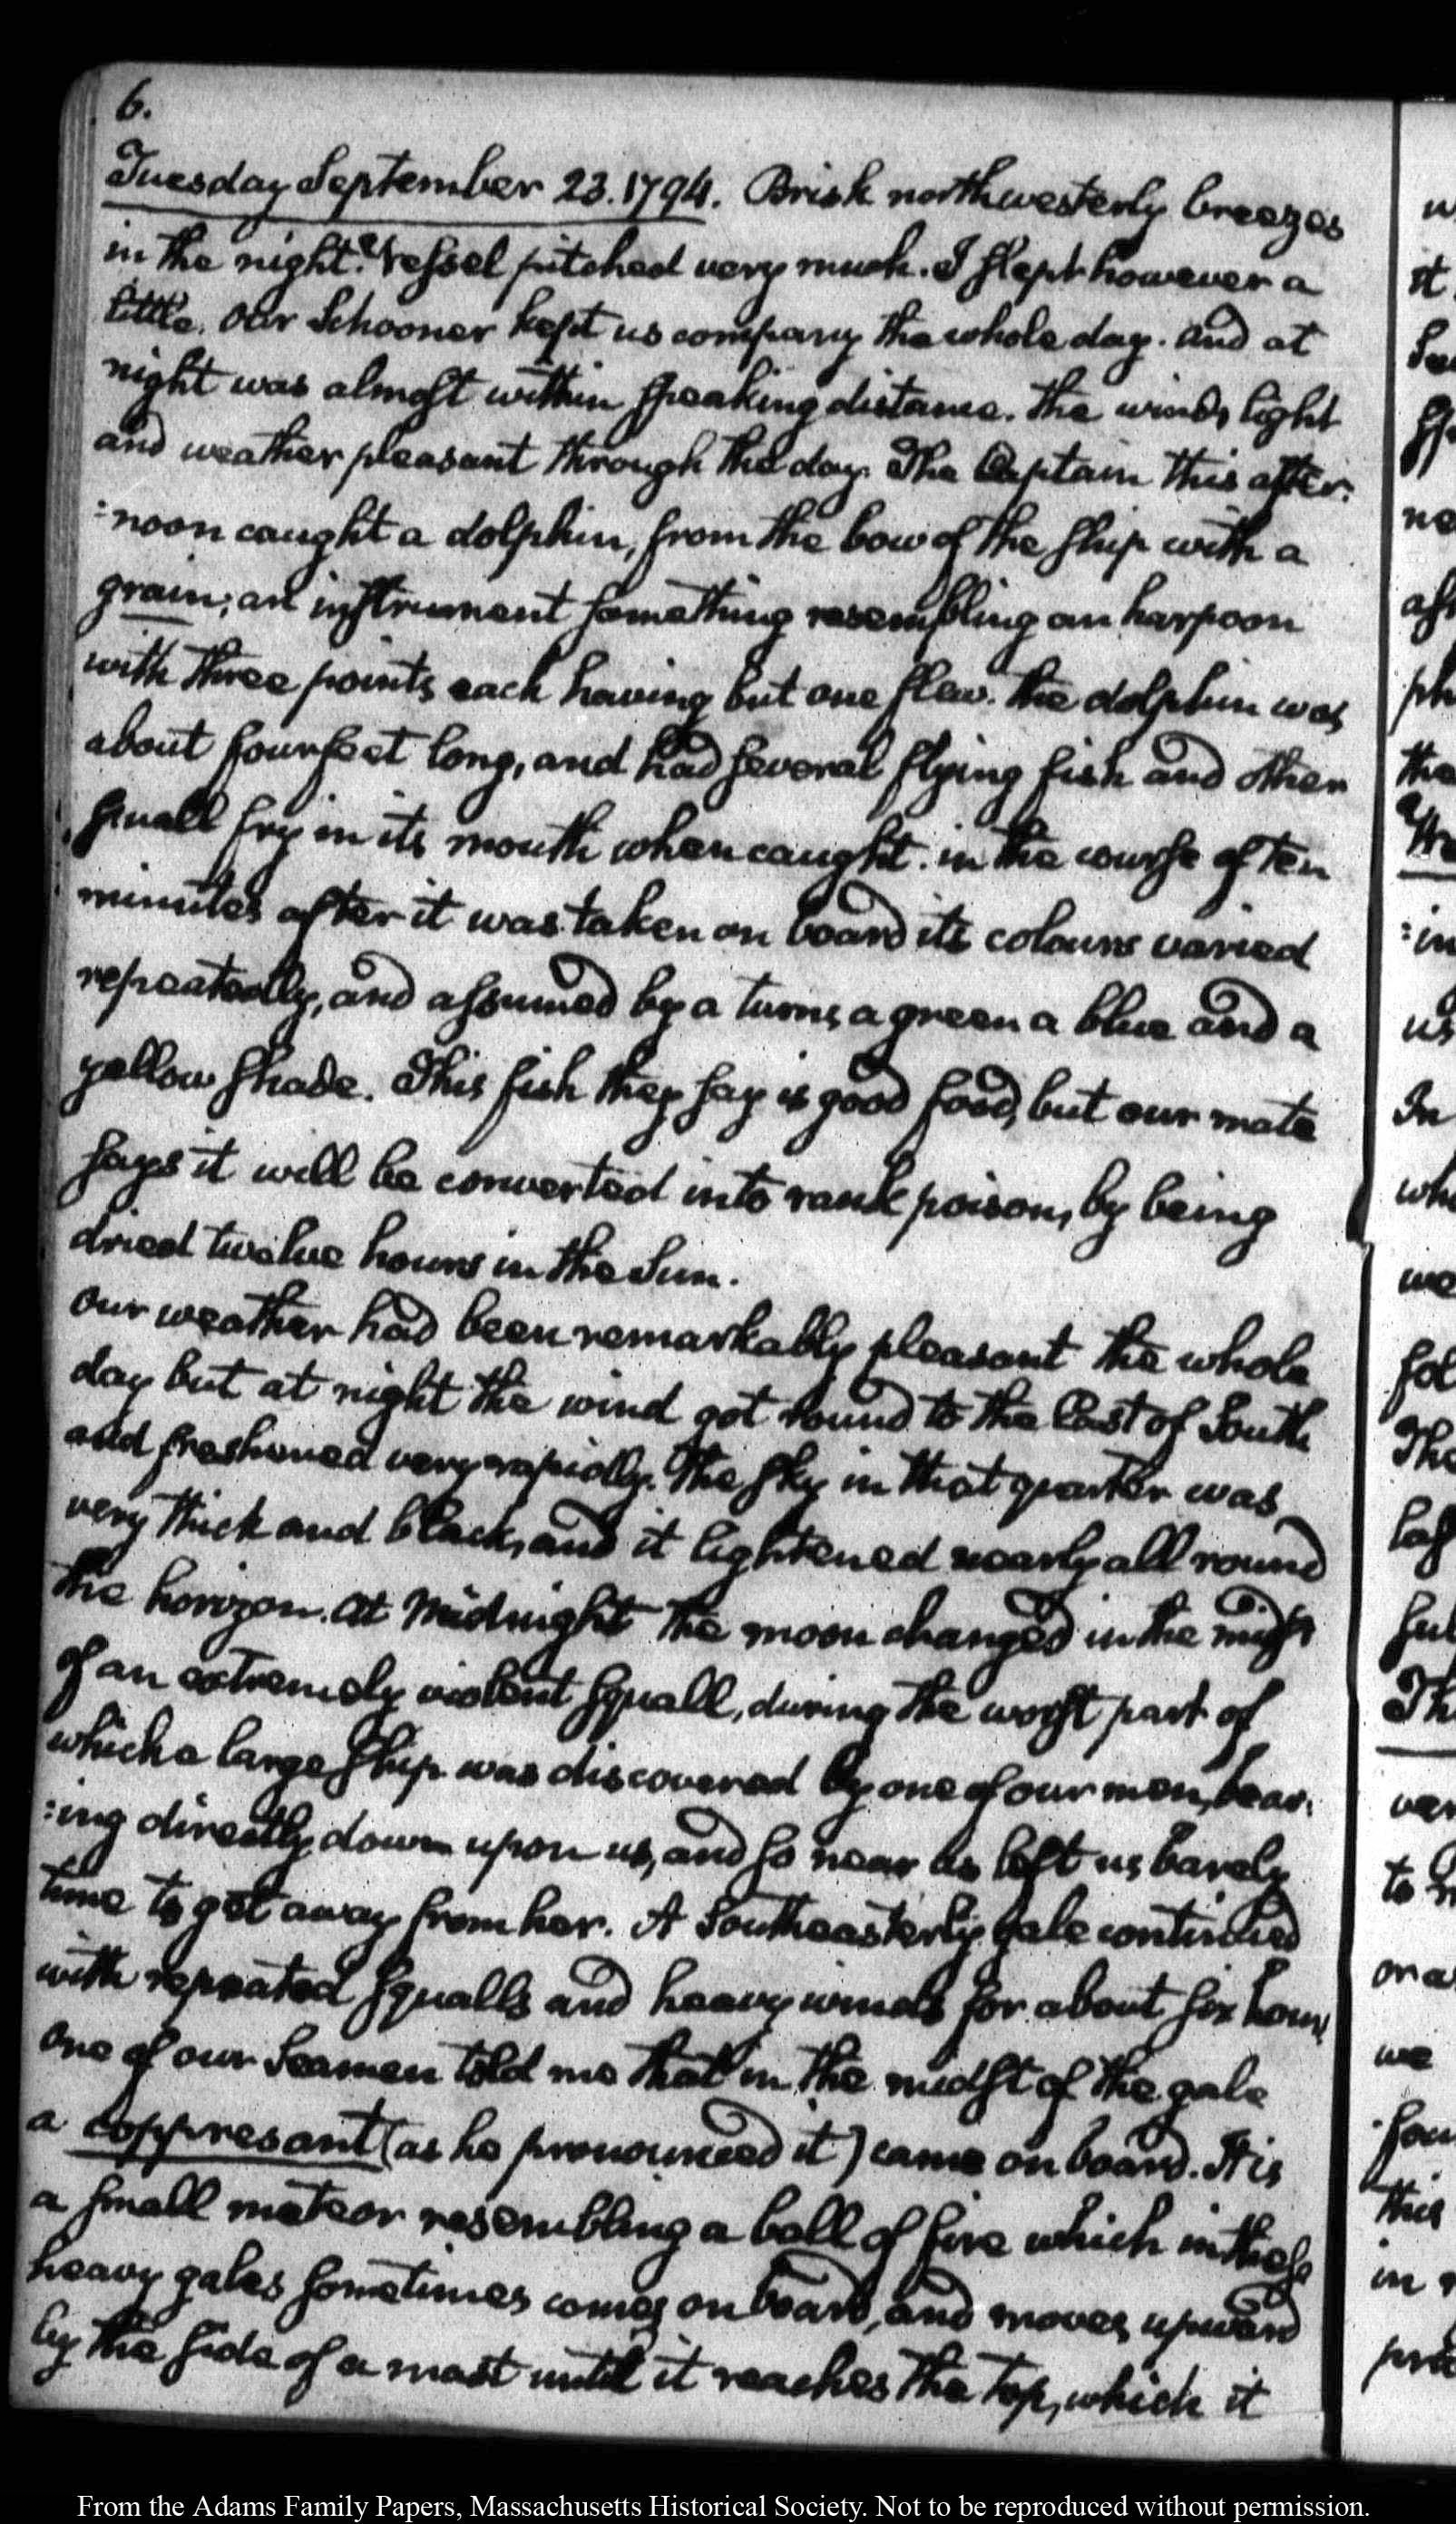 6.
Tuesday September 23. 1794. Brisk northwesterly breezes
in the night. Vessel pitched very much. I slept however a
little. Our Schooner kept us company the whole day. and at
night was almost within speaking distance. The winds light
and weather pleasant through the day. The Captain this after:
:noon caught a dolphin, from the bow of the ship with a
grain; an instrument something resembling an harpoon
with three points each having but one flew. The dolphin was
about four feet long, and had several flying fish and other
small fry in its mouth when caught. in the course of ten
minutes after it was taken on board its colours varied
repeatedly, and assumed by a turns a green a blue and a
yellow shade. This fish they say is good food, but our mate
says it will be converted into rank poison, by being
dried twelve hours in the Sun.
Our weather had been remarkably pleasant the whole
day but at night the wind got round to the East of South
and freshened very rapidly. The sky in that quarter was
very thick and black, and it lightened nearly all round
the horizon. At Midnight the moon changed in the midst
of an extremely violent squall, during the worst part of
which a large ship was discovered by one of our men, bear:
:ing directly down upon us, and so near as left us barely
time to get away from her. A Southeasterly gale continued
with repeated squalls and heavy winds for about six hours
One of our Seamen told me that in the midst of the gale
a coppresant (as he pronounced it) came on board. It is
a small meteor resembling a ball of fire which in these
heavy gales sometimes comes on board, and moves upward
by the side of a mast until it reaches the top, which it
From the Adams Family Papers, Massachusetts Historical Society. Not to be reproduced without permission.